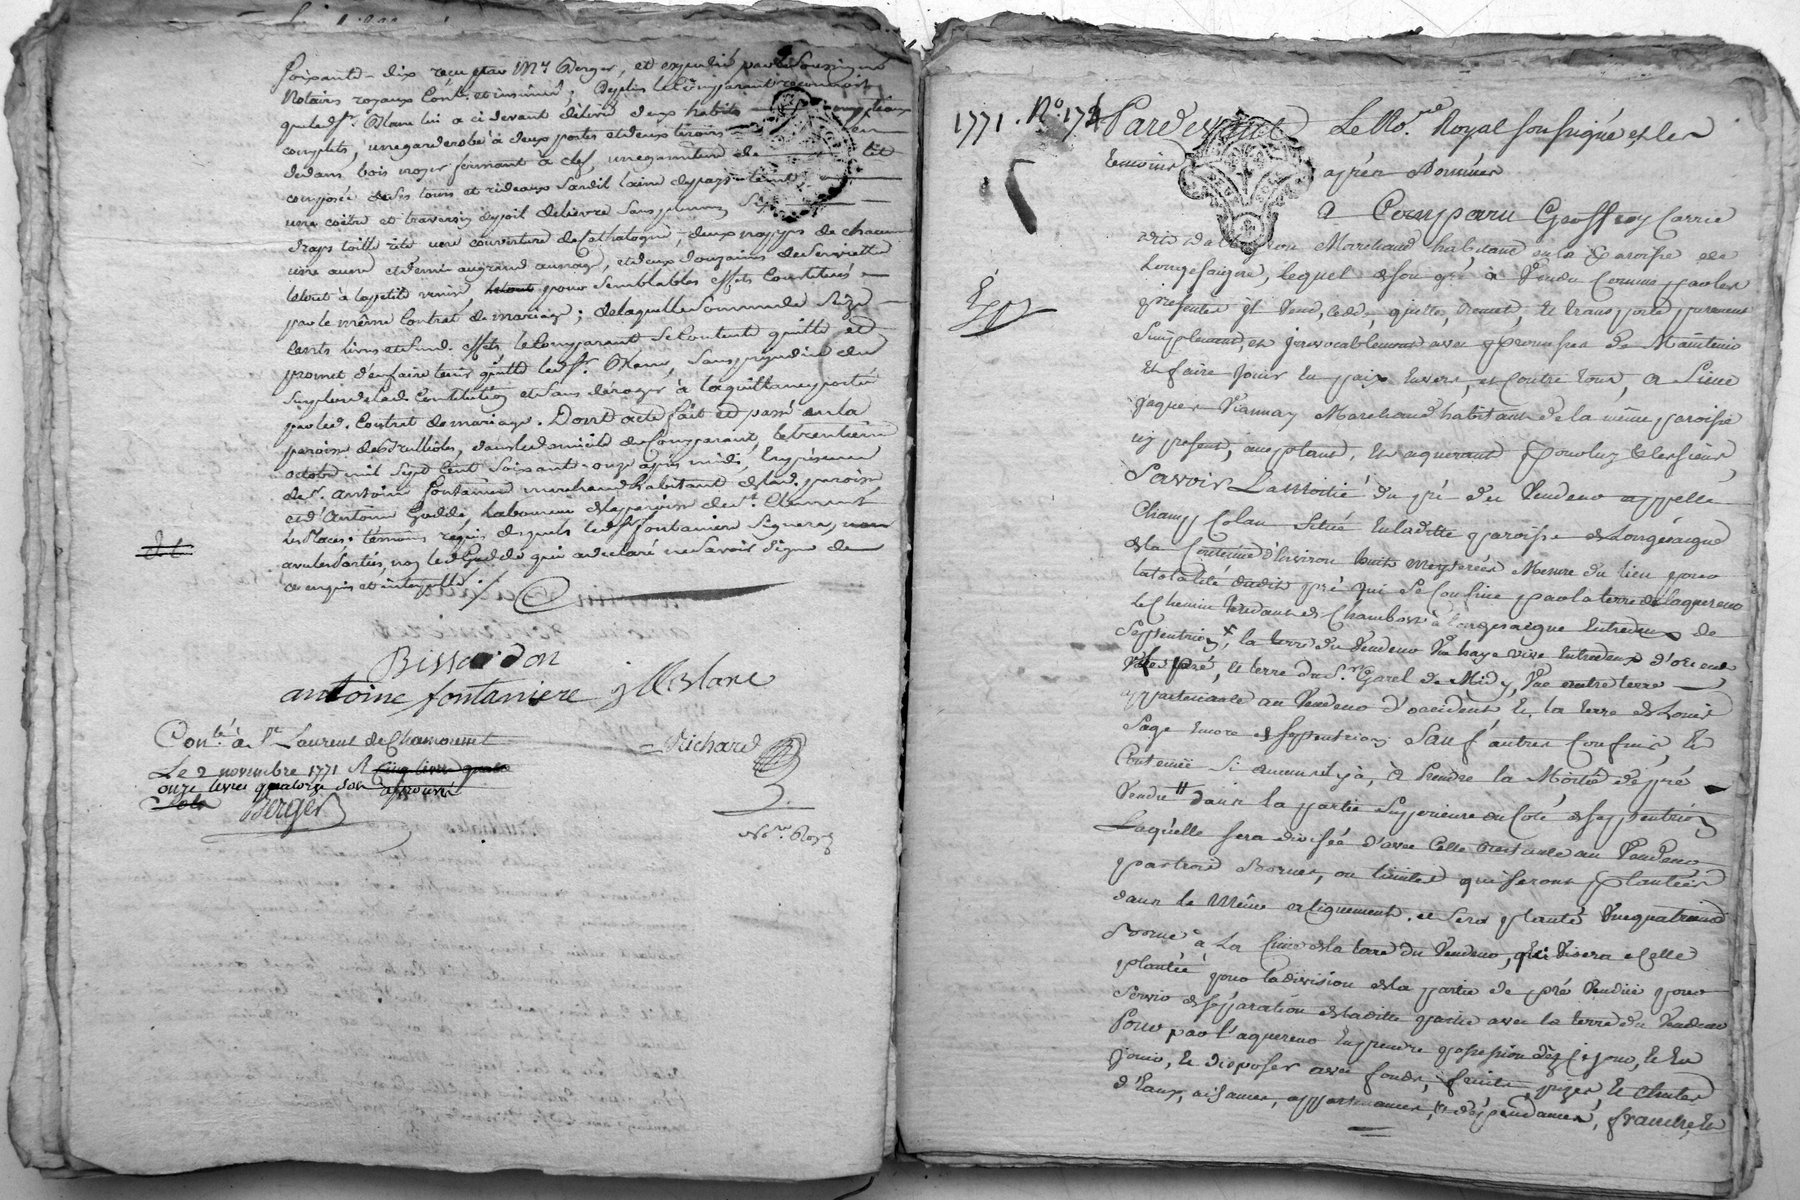 soixante-dix reçu par Me Berger, et expédié par le soussigné
Notaire royaux Cont. et insinué; De plus le Comparant reconnoit
que led. Sr. lui a ci devant délivré deux habits
complets, une garderobe à deux portes et deux tiroirs
dedans bois noyer fermant à clef, une garniture de lit
composée de ses tours et rideaux Sardil laine de pays teint
une coëtre et traversin
draps toille rite une couverture de Cathalogne, deux nappes de chacune
une aune et demie au grand aunage, et deux douzaines de serviettes
letout à la petite venise, pour semblables effets Constitués
par le même Contrat de mariage; de laquelle somme de seize
cents livres et sud. effets le Comparant se Contente quitte et
promet d'en faire tenir quitte led. Sr. sans préjudice du
surplus de lad. Constitution et sans déroger à la quittance portée
par led. Contrat de mariage. Dont acte fait et passé en la
paroisse des Trellioles, dans le domicile du Comparant, le trentième
octobre mil sept cent soixante-onze après midi, En présence
de Sr. antoine fontaniere marchand habitant de lad. paroisse
et d'Antoine Goddé, Laboureur de la paroisse de St. Clement
les Places, témoins requis desquels led. Sr fontaniere signera,
avec les parties, non led. Goddé qui a déclaré ne savoir signer de
ce enquis et interpellé./.
Bissardon
antoine fontaniere
Richard
Con.té à St. Laurent de Chamousset
Le 2 novembre 1771 R cinq livres
onze livres quatorze sols approuvé
Sols Berger
No.re Royal
1771. No. 172 Pardevant Le No.re Royal soussigné et les
témoins après Nommés
a Comparu Geoffroy Carrie
Marchand habitant en la Paroisse de
Longesaigne, lequel de son gré a Vendu Comme par les
présentes il Vend, cede, quitte, remet, et transporte purement
simplement, et irrevocablement avec promesse de Maintenir
et faire jouir en paix Envers, et Contre tous, a Sieur
Jaques Marchand habitant de la même paroisse
icy present, acceptant, et aquereur pour luy et les siens,
Savoir La Moitié du pré du Vendeur appellé
Champ Colan Situé en laditte paroisse de Longesaigne
de la Contenue d'Environ huit meyterées Mesure du lieu pour
la totalité dudit pré qui se Confine par la terre de laquereur
Le Chemin tendant de Chambost à Longesaigne Entredeux de
septentrion, la terre du Vendeur Une haye vive Entredeux d'orient
pré, et terre du Sr. Garel de Midy, Une autre terre
appartenante au Vendeur d'occident et la terre de Louis
Sage Encore de septentrion Sauf autres Confins, et
Contenüe si aucun il y à, a Prendre la Moitié de pré
Vendre dans la partie Superieure du Coté de septentrion
Laquelle sera divisée d'avec Celle restante au Vendeur
par trois Bornes, ou limites qui seront Plantées
dans le Même alignement. et sera planté Une quatrieme
Borne à La Cime de la terre du Vendeur, qui Visera à celle
plantée pour la division de la partie de pré Vendüe pour
Servir de séparation de laditte partie avec la terre du Vendeur
Pour par l'aquereur En prendre possession dez Ce jour, et En
jouir, et disposer avec fonds, fruits, prises, et Chutes
d'Eaux, aisances, appartenances, et dépendances, franche, et